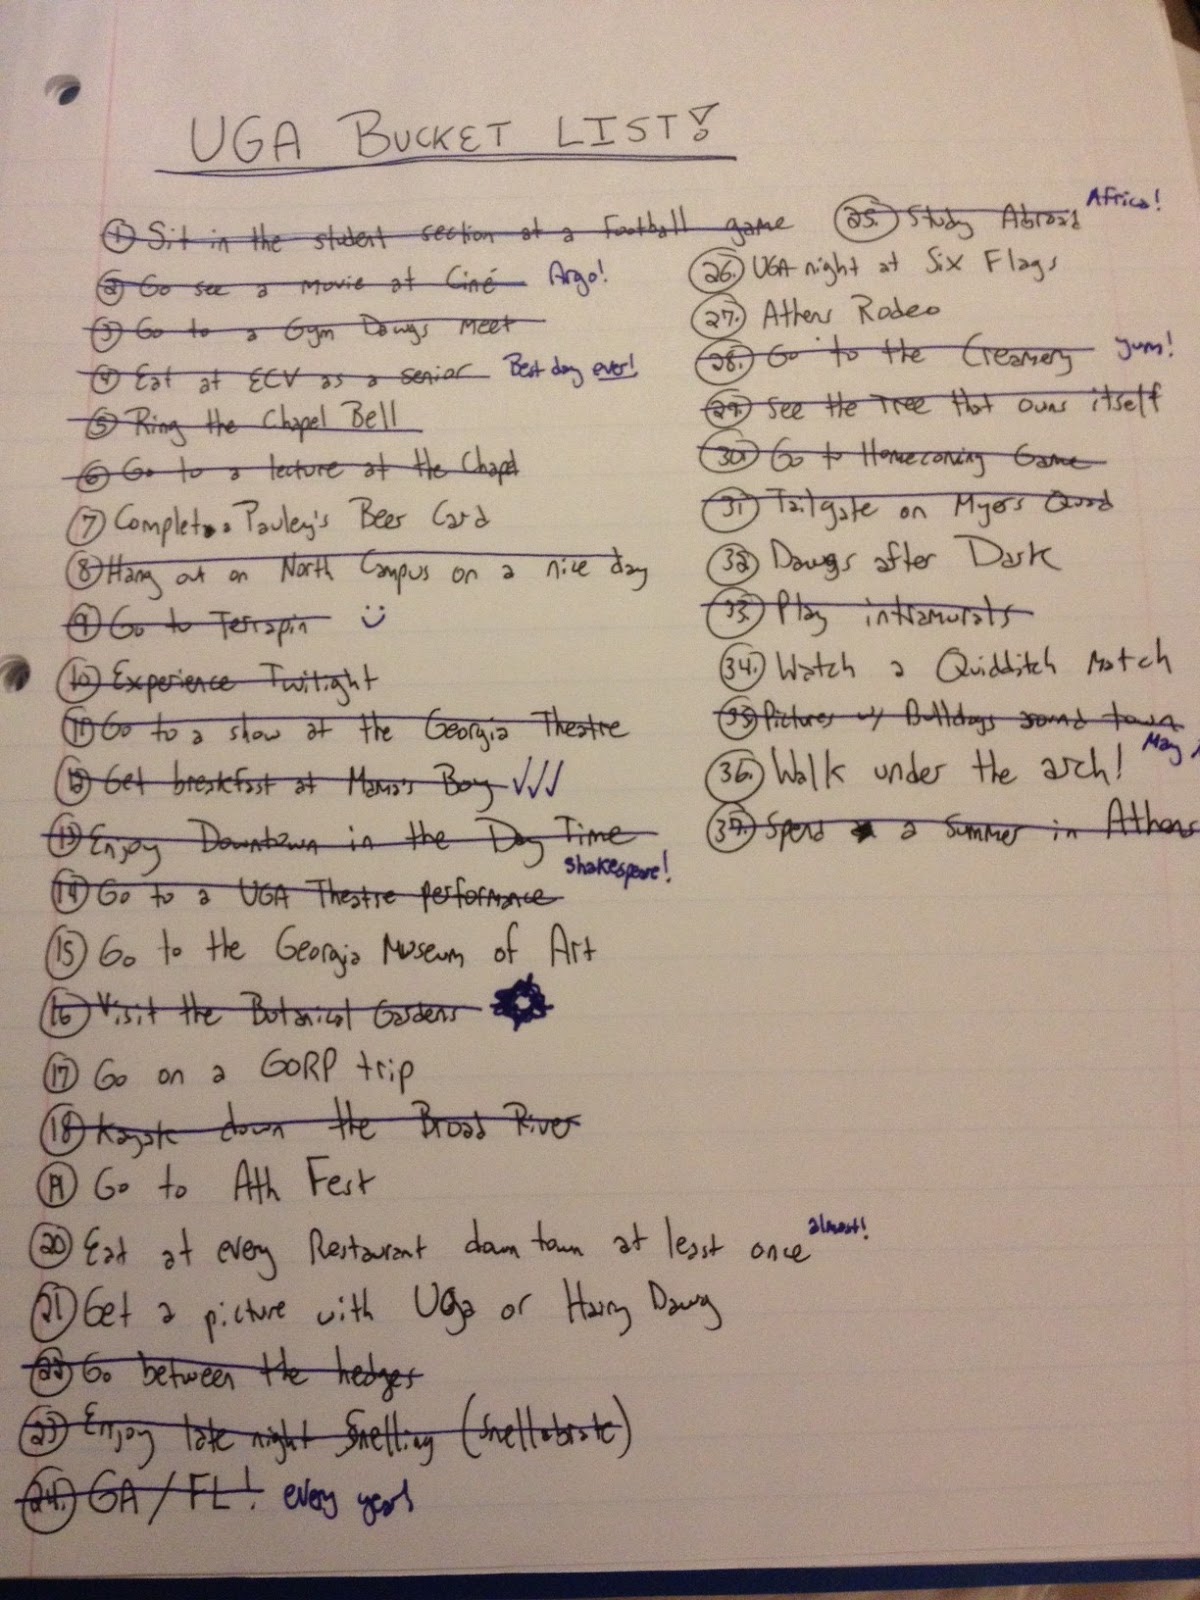 UGA BUCKET LIST!
1 Sit in the student section at a Football game
2 Go see a movie at Ciné Argo!
3 Go to a Gym Dawgs Meet
4 Eat at ECV as a senior Best day ever!
5 Ring the Chapel Bell
6 Go to a lecture at the Chapel
7 Complete a Pauley's Beer Card
8 Hang out on North Campus on a nice day
9 Go to Terrapin
10 Experience Twilight
11 Go to a show at the Georgia Theatre
12 Get breakfast at Mama's Boy ✓✓✓
13 Enjoy Downtown in the Day Time
14 Go to a UGA Theatre performance shakespeare!
15 Go to the Georgia Museum of Art
16 Visit the Botanical Gardens
17 Go on a GORP trip
18 Kayak down the Broad River
19 Go to Ath Fest
20 Eat at every Restaurant down town at least once almost!
21 Get a picture with Uga or Hairy Dawg
22 Go between the hedges
23 Enjoy late night Snelling (Snellabrate)
24. GA/FL! every year!
25. Study Abroad Africa!
26. UGA night at Six Flags
27. Athens Rodeo
28. Go to the Creamery yum!
29. See the Tree that owns itself
30. Go to Homecoming Game
31 Tailgate on Myers Quad
32 Dawgs after Dark
33. Play intramurals
34. Watch a Quidditch Match
35. Pictures w/ Bulldogs around town
May
36. Walk under the arch!
37. Spend a Summer in Athens